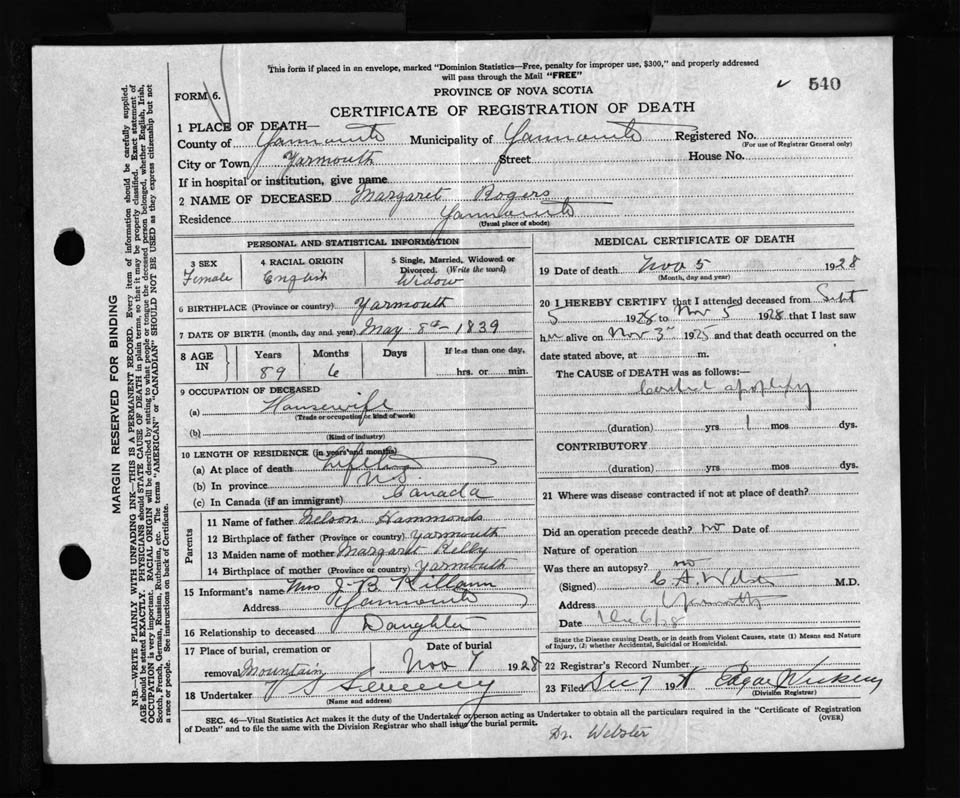 This form if placed in an envelope, marked "Dominion Statistics—Free, penalty for improper use, $300," and properly addressed
will pass through the Mail "FREE"
540
FORM 6.
PROVINCE OF NOVA SCOTIA
CERTIFICATE OF REGISTRATION OF DEATH
1 PLACE OF DEATH—
County of Yarmouth Municipality of Yarmouth Registered No.
(For use of Registrar General only)
City or Town Yarmouth Street House No.
If in hospital or institution, give name
2 NAME OF DECEASED Margaret Rogers
Residence Yarmouth
(Usual place of abode)
PERSONAL AND STATISTICAL INFORMATION
3 SEX 4 RACIAL ORIGIN 5 Single, Married, Widowed or
Divorced. (Write the word)
Female English Widow
6 BIRTHPLACE (Province or country) Yarmouth
7 DATE OF BIRTH (month, day and year) May 8th 1839
8 AGE IN Years Months Days If less than one day,
89 6 hrs. or min.
9 OCCUPATION OF DECEASED
(a) Housewife
(Trade or occupation or kind of work)
(b)
(Kind of industry)
10 LENGTH OF RESIDENCE (in years and months)
(a) At place of death Lifetime
(b) In province N.S.
(c) In Canada (if an immigrant) Canada
Parents
11 Name of father Nelson Hammonds
12 Birthplace of father (Province or country) Yarmouth
13 Maiden name of mother Margaret Kelly
14 Birthplace of mother (Province or country) Yarmouth
15 Informant's name Mrs J. B. Killam
Address Yarmouth
16 Relationship to deceased Daughter
17 Place of burial, cremation or Date of burial
removal Mountain Nov 7 1928
18 Undertaker Sweeny
(Name and address)
MEDICAL CERTIFICATE OF DEATH
19 Date of death Nov 5 1928
(Month, day and year)
20 I HEREBY CERTIFY that I attended deceased from Sept
5 1928 to Nov 5 1928 that I last saw
h alive on Nov 3 1925 and that death occurred on the
date stated above, at m.
The CAUSE of DEATH was as follows:—
Cerebral apoplexy
(duration) yrs 1 mos dys.
CONTRIBUTORY
(duration) yrs. mos. dys.
21 Where was disease contracted if not at place of death?
Did an operation precede death? no Date of
Nature of operation
Was there an autopsy? no
(Signed) C A Webster M.D.
Address Yarmouth
Date Dec 6/28
State the Disease causing Death, or in death from Violent Causes, state (1) Means and Nature
of Injury, (2) whether Accidental, Suicidal or Homicidal.
22 Registrar's Record Number
23 Filed Dec 7 1928 Edgar
(Division Registrar)
SEC. 46—Vital Statistics Act makes it the duty of the Undertaker or person acting as Undertaker to obtain all the particulars required in the "Certificate of Registration
of Death" and to file the same with the Division Registrar who shall issue the burial permit. (OVER)
Dr. Webster
MARGIN RESERVED FOR BINDING
N.B.—WRITE PLAINLY WITH UNFADING INK—THIS IS A PERMANENT RECORD. Every item of information should be carefully supplied.
AGE should be stated EXACTLY. PHYSICIANS should STATE CAUSE OF DEATH in plain terms, so that it may be properly classified. Exact statement of
OCCUPATION is very important. RACIAL ORIGIN will be described by stating to what people or tongue the deceased person belonged, whether English, Irish,
Scotch, French, German, Russian, Ruthenian, etc. The terms "AMERICAN" or "CANADIAN" SHOULD NOT BE USED as they express citizenship but not
a race or people. See instructions on back of Certificate.